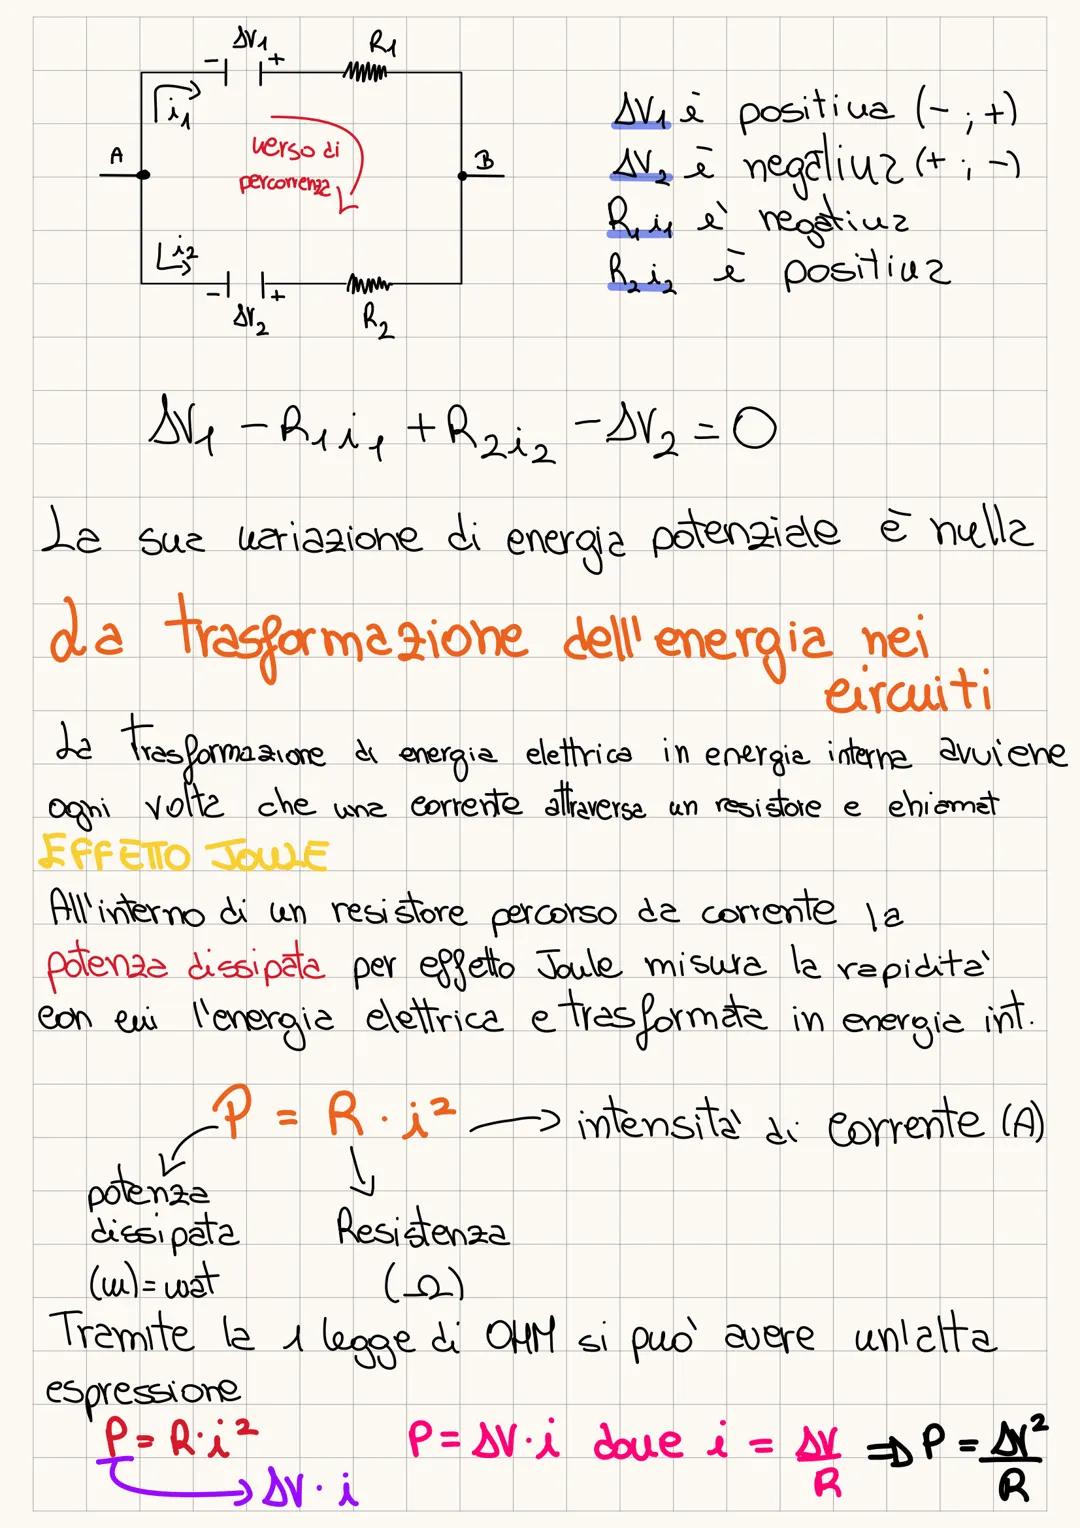 ΔV1
R1
- +
i1
A
verso di
percorrenza
B
i2
- +
ΔV2
R2
ΔV1 è positiva (- ; +)
ΔV2 è negativa (+ ; -)
R1 i1 e' negativa
R2 i2 è positiva
ΔV1 - R1 i1 + R2 i2 - ΔV2 = 0
La sua variazione di energia potenziale è nulla
La trasformazione dell'energia nei
circuiti
La trasformazione di energia elettrica in energia interna avviene
ogni volta che una corrente attraversa un resistore e chiamat
EFFETTO JOULE
All'interno di un resistore percorso da corrente la
potenza dissipata per effetto Joule misura la rapidita'
con cui l'energia elettrica e trasformata in energia int.
P = R · i² → intensita' di corrente (A)
potenza
dissipata
(w) = wat
Resistenza
(Ω)
Tramite la 1 legge di OHM si puo' avere un'alta
espressione
P = R · i²
→ ΔV · i
P = ΔV · i dove i = ΔV/R ⇒ P = ΔV²/R